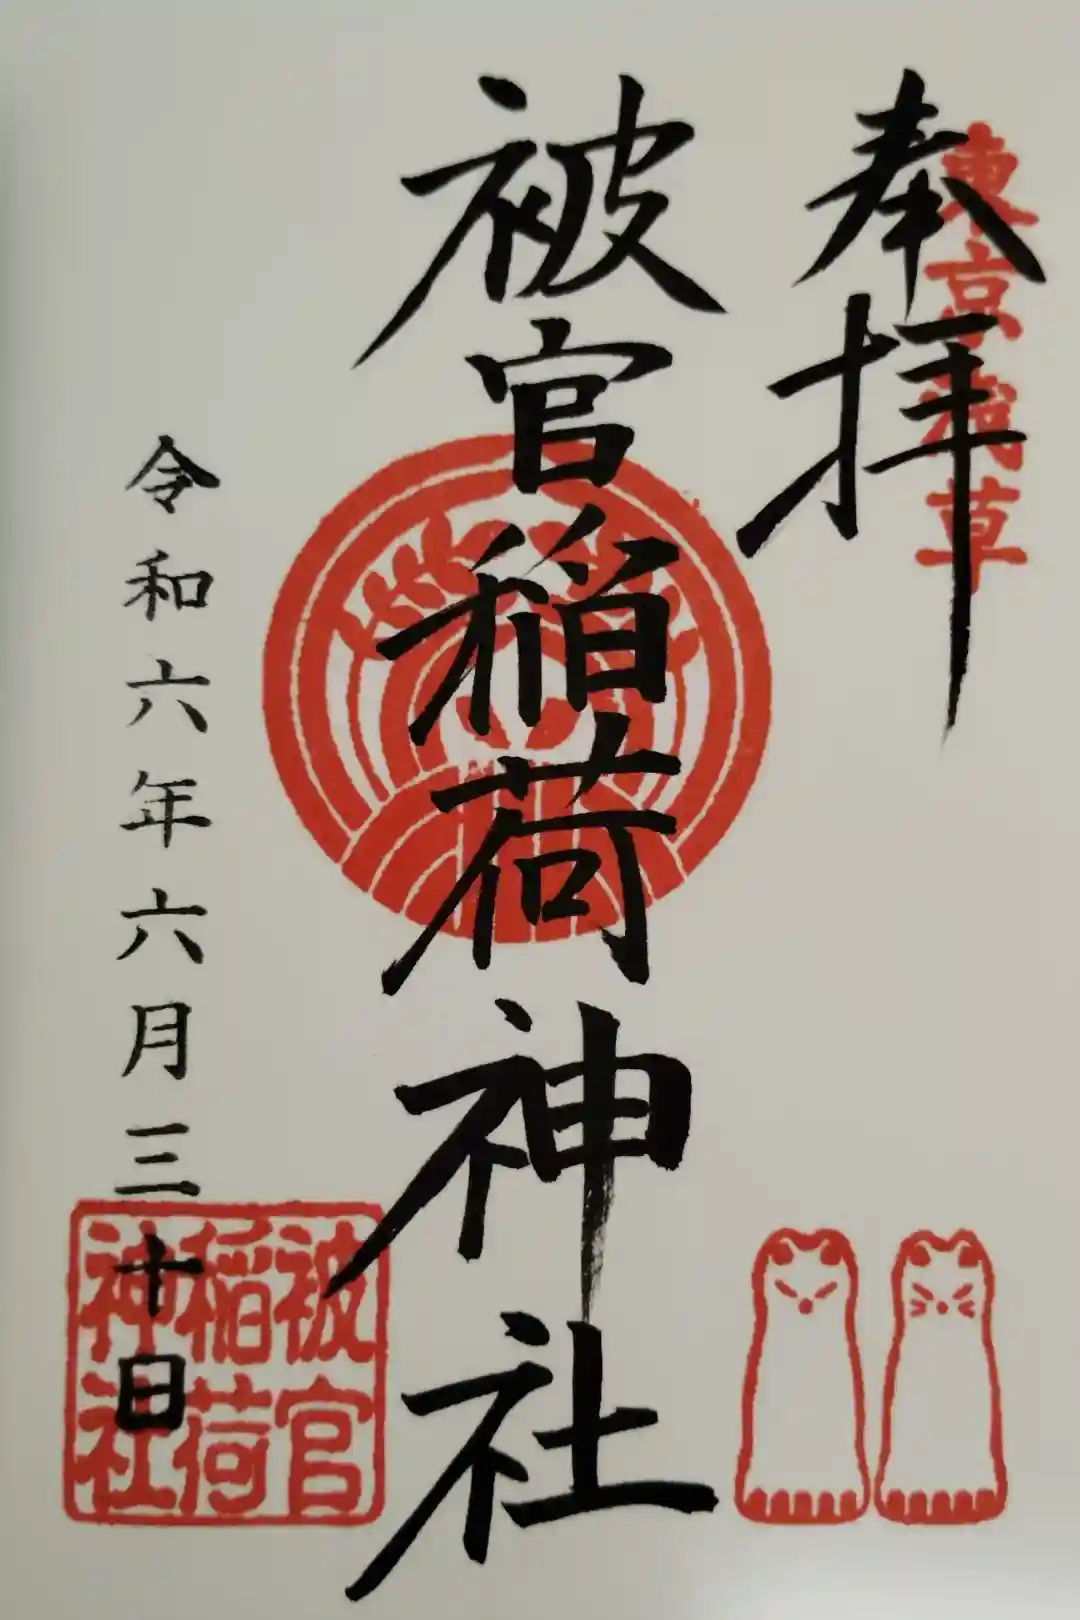 奉拝
東京浅草
被官稲荷神社
令和六年六月三十日
被官
稲荷
神社